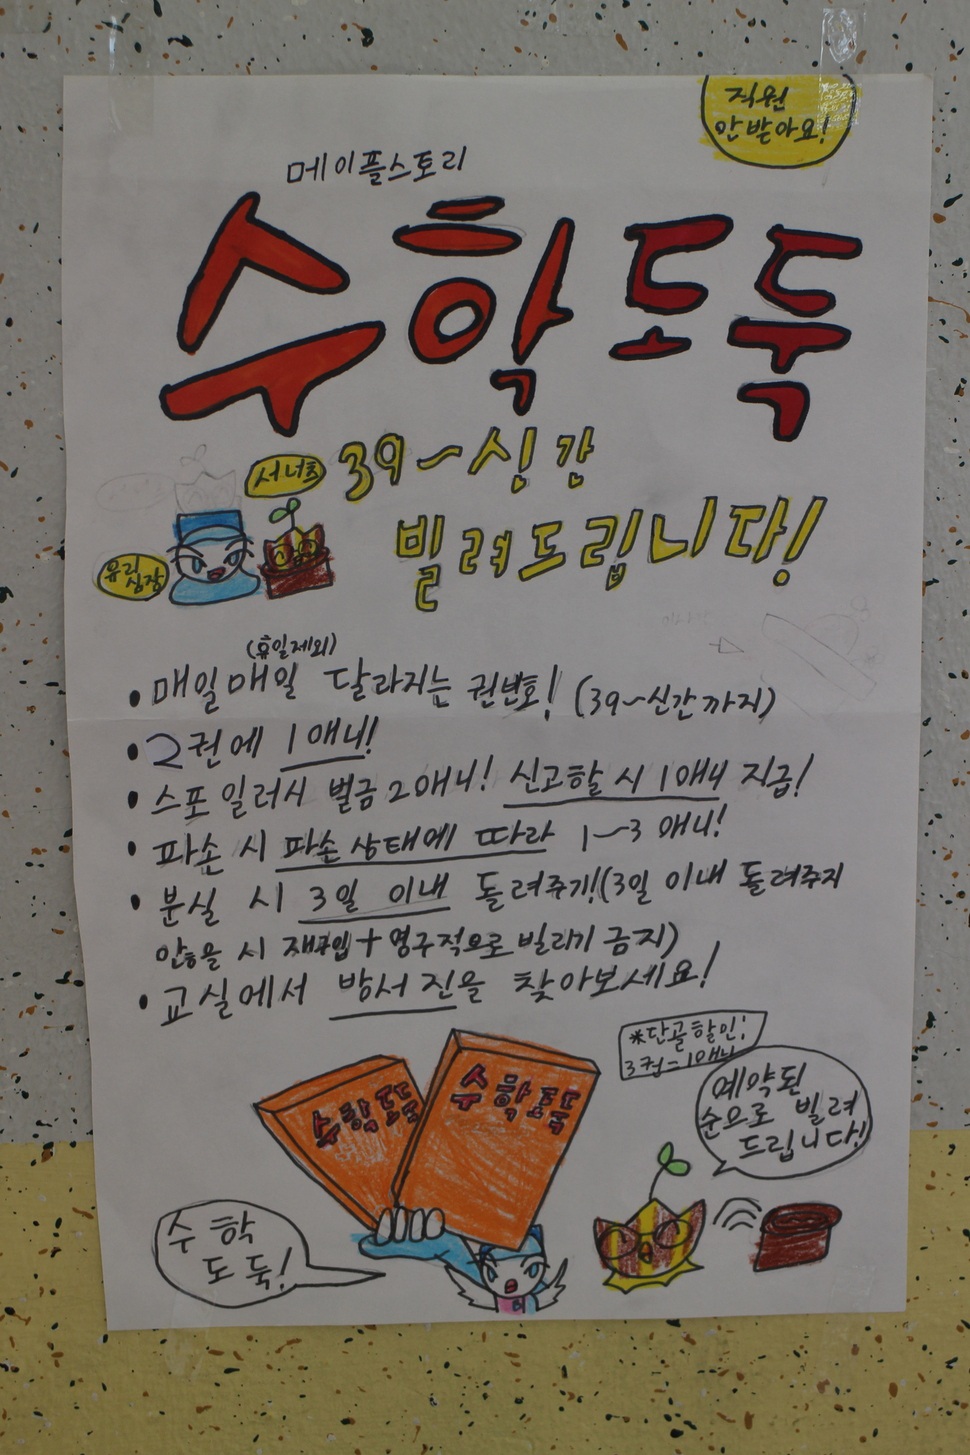 직원
안받아요!
메이플스토리
수학도둑
39~신간
서너츠
빌려드립니다!
유리
심장
(휴일제외)
• 매일매일 달라지는 권번호! (39~신간까지)
• 2권에 1애니!
• 스포일러시 벌금 2애니! 신고할 시 1애니 지급!
• 파손 시 파손상태에 따라 1~3 애니!
• 분실 시 3일 이내 돌려주기!(3일 이내 돌려주지
않을 시 재구입+영구적으로 빌리기 금지)
• 교실에서 방서진을 찾아보세요!
*단골할인;
3권=1애니
수학도둑
수학도둑
예약된
순으로 빌려
드립니다!
수학
도둑!